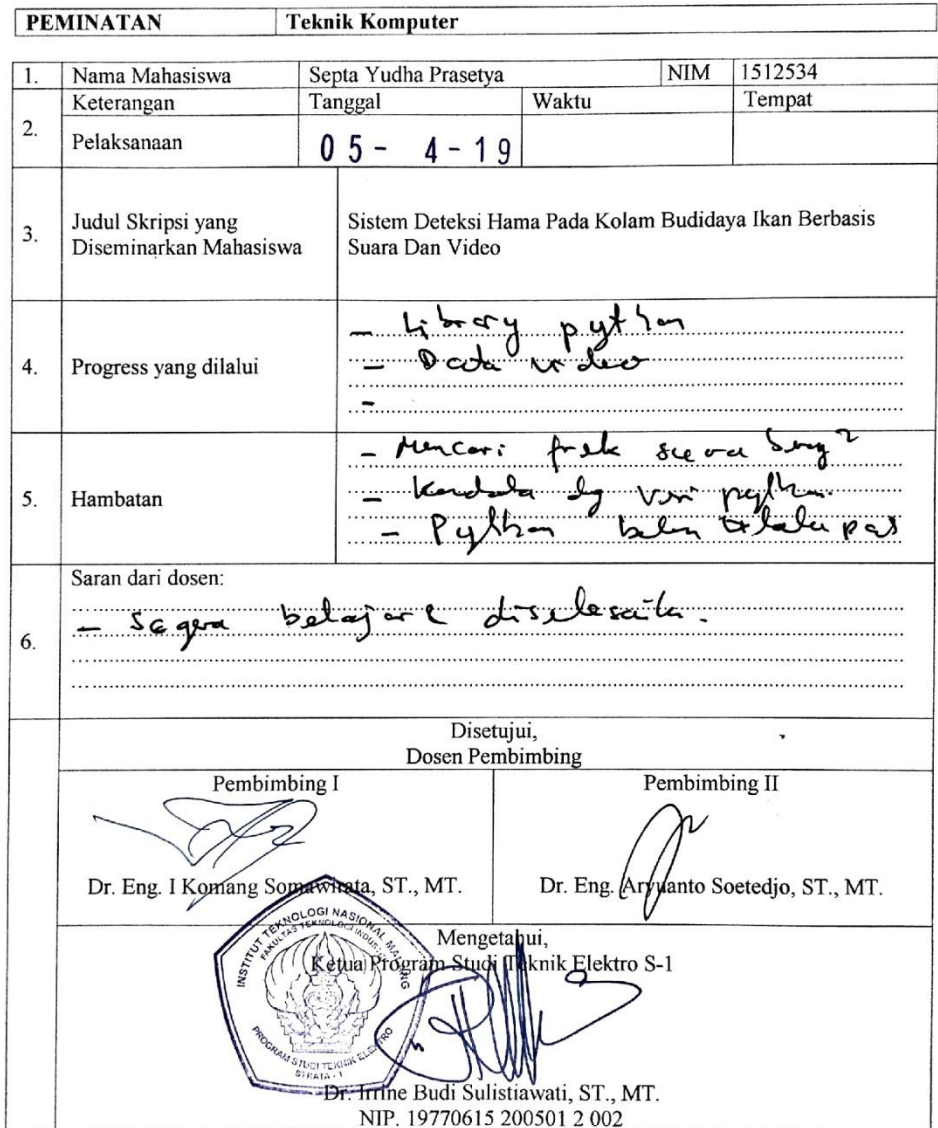 PEMINATAN Teknik Komputer
1. Nama Mahasiswa Septa Yudha Prasetya NIM 1512534
2. Keterangan Tanggal Waktu Tempat
Pelaksanaan 05-4-19
3. Judul Skripsi yang Diseminarkan Mahasiswa
Sistem Deteksi Hama Pada Kolam Budidaya Ikan Berbasis
Suara Dan Video
4. Progress yang dilalui
- Library python
- Data video
-
5. Hambatan
- Mencari frek suara
- Kendala dg python.
- Python belum terlalu pas
6. Saran dari dosen:
- Segera belajar &
Disetujui,
Dosen Pembimbing
Pembimbing I Pembimbing II
Dr. Eng. I Komang Somawirata, ST., MT. Dr. Eng. Aryuanto Soetedjo, ST., MT.
INSTITUT TEKNOLOGI NASIONAL MALANG
FAKULTAS TEKNOLOGI INDUSTRI
PROGRAM STUDI TEKNIK ELEKTRO
STRATA - 1
Mengetahui,
Ketua Program Studi Teknik Elektro S-1
Dr. Irrine Budi Sulistiawati, ST., MT.
NIP. 19770615 200501 2 002